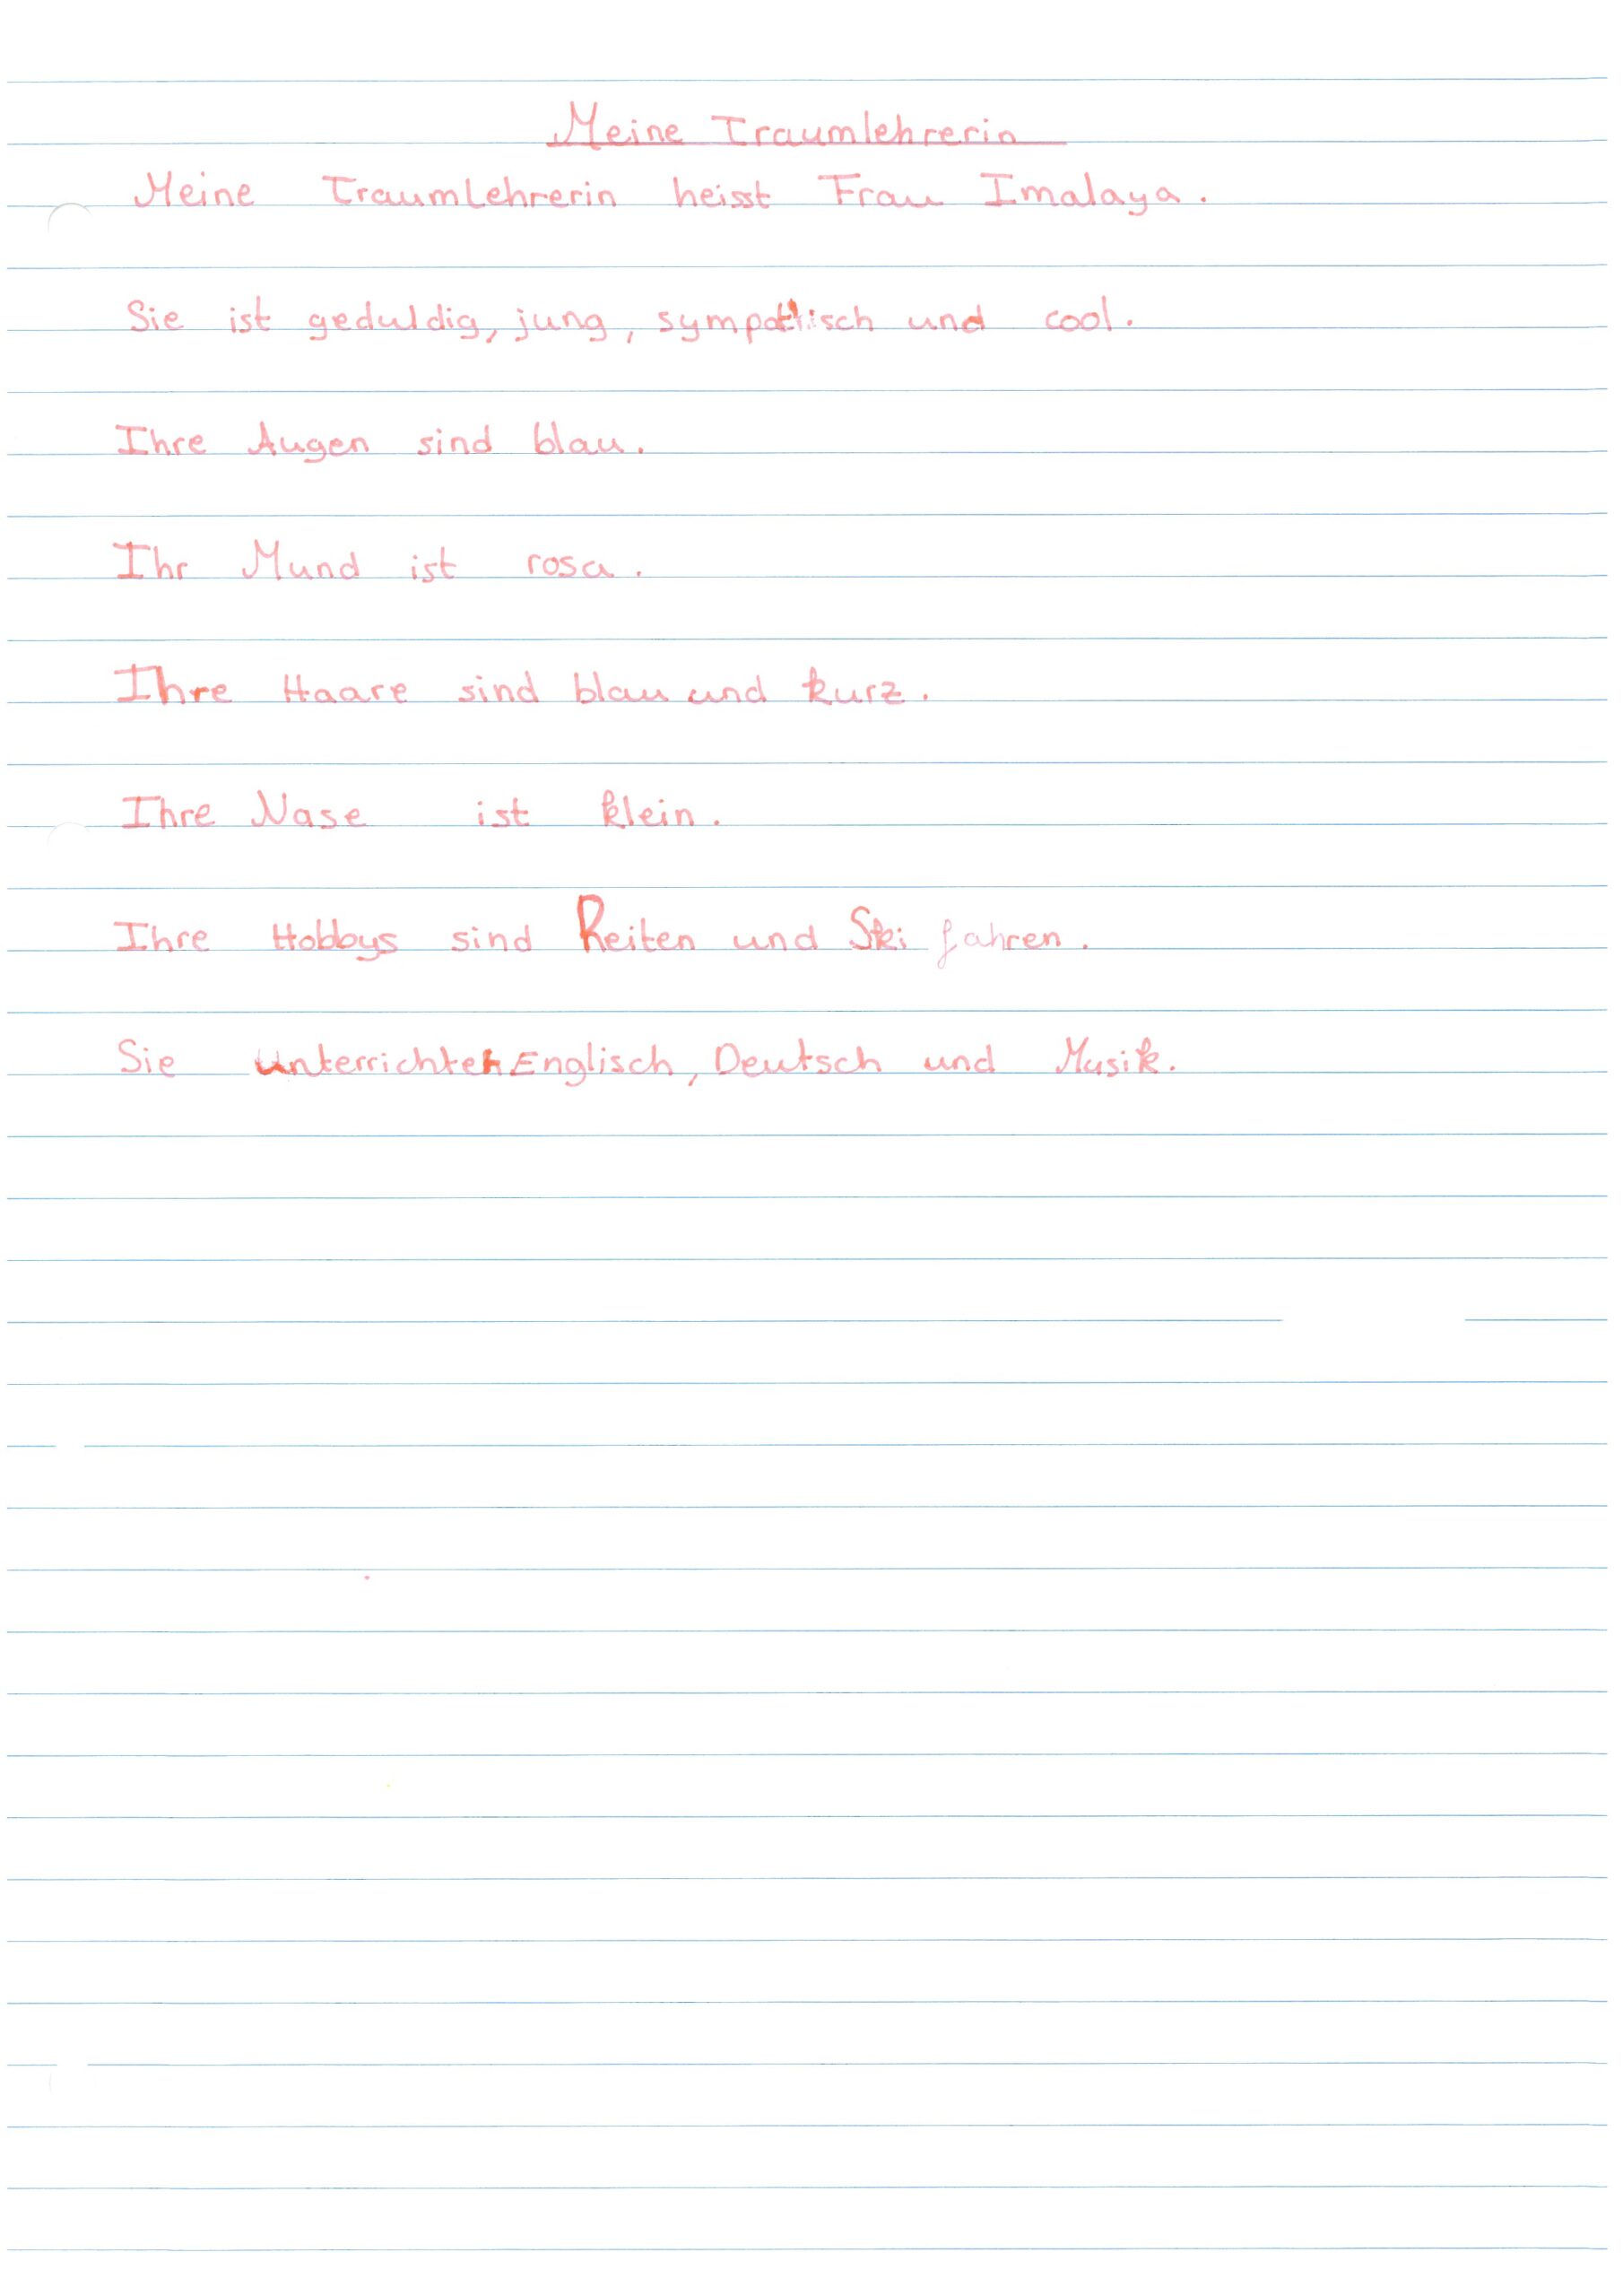 Meine Traumlehrerin
Meine Traumlehrerin heisst Frau Imalaya.
Sie ist geduldig, jung, sympathisch und cool.
Ihre Augen sind blau.
Ihr Mund ist rosa.
Ihre Haare sind blau und kurz.
Ihre Nase ist klein.
Ihre Hobbys sind Reiten und Ski fahren.
Sie Englisch, Deutsch und Musik.